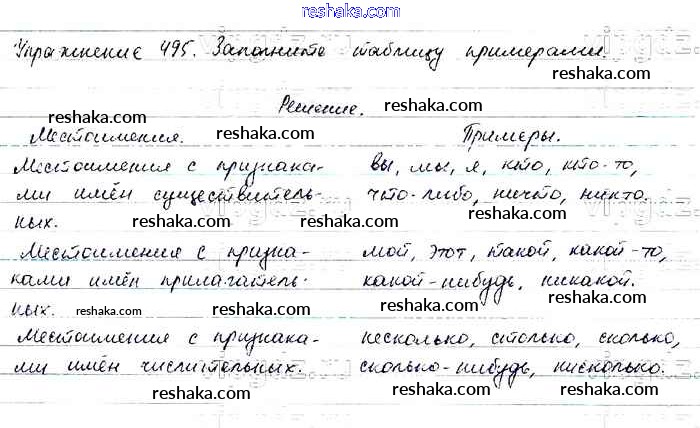 reshaka.com
Упражнение 495. Заполните таблицу примерами.
reshaka.com
Решение. reshaka.com
reshaka.com
Местоимения. reshaka.com Примеры.
reshaka.com
Местоимения с признака- вы, мы, я, кто, кто-то,
reshaka.com
ми имён существитель- что-либо, ничто, никто.
ных. reshaka.com reshaka.com
Местоимения с призна- мой, этот, такой, какой-то,
reshaka.com
ками имён прилагатель- какой-нибудь, никакой.
reshaka.com
ных. reshaka.com reshaka.com
Местоимения с признака- несколько, столько, сколько,
reshaka.com
ми имён числительных. сколько-нибудь, нисколько.
reshaka.com reshaka.com